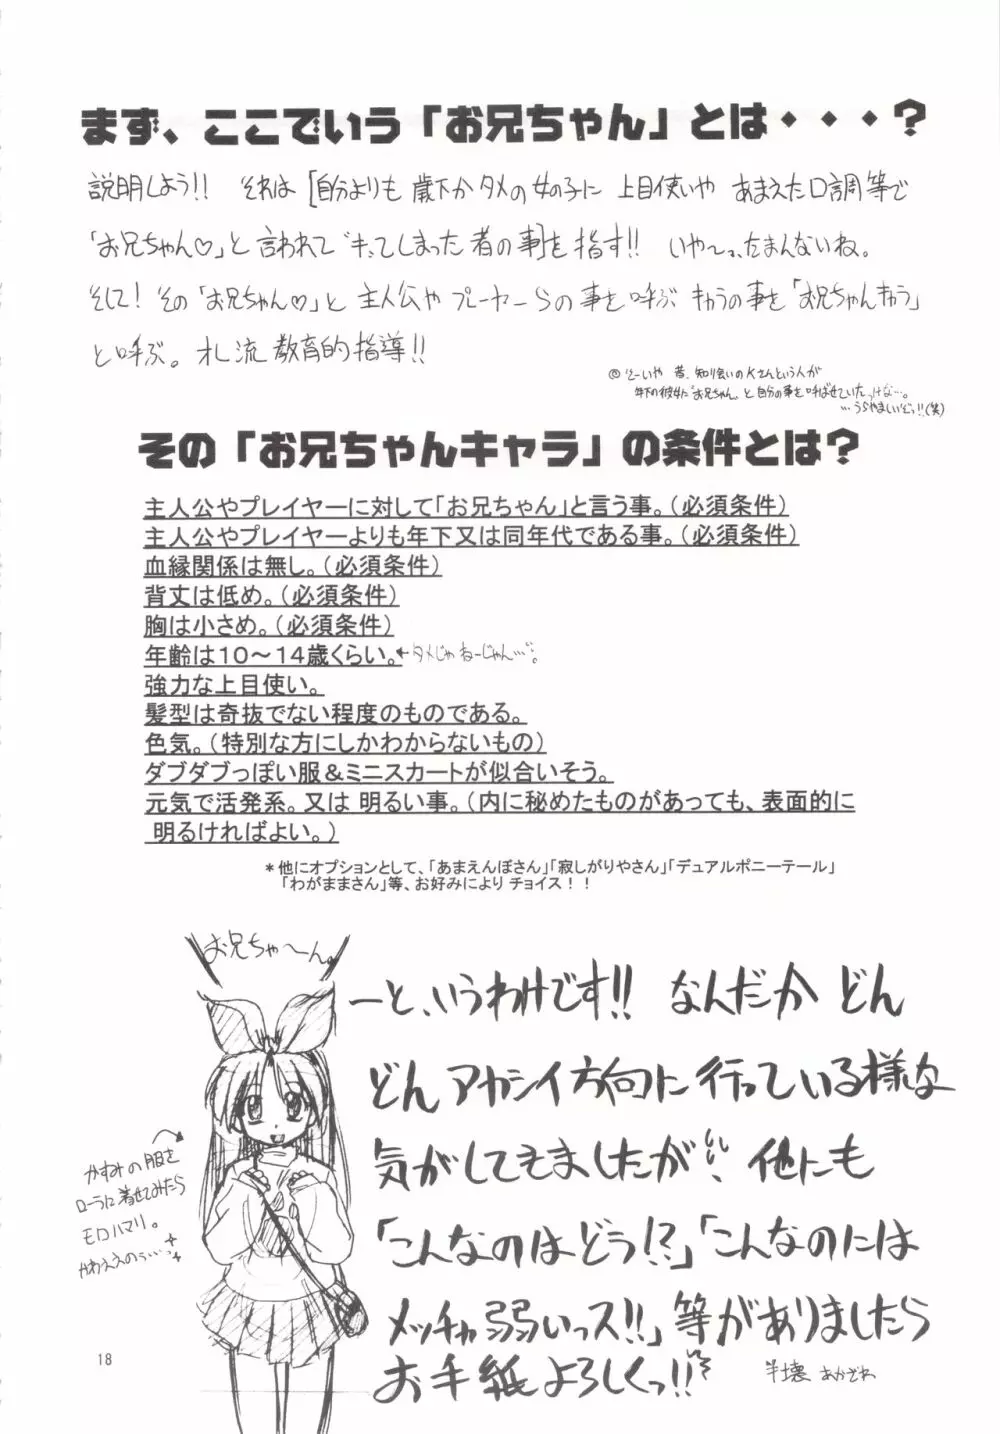 まず、ここでいう「お兄ちゃん」とは・・・？
説明しよう!! それは[自分よりも 歳下か タメの 女の子に 上目使いや あまえた口調等で
「お兄ちゃん♡」と 言われて ｷｭｯてしまった 者の事]を指す!! いや〜っ、たまんないね。
そして! その「お兄ちゃん♡」と 主人公や プレーヤーらの事を呼ぶ キャラの事を「お兄ちゃんキャラ」
と呼ぶ。オレ流 教育的指導!!
◎そーいや 昔、知り会いのKさんという人が
年下の彼女に「お兄ちゃん」と 自分の事を 呼ばせていたっけな…。
…うらやましいぞっ!!(笑)
その「お兄ちゃんキャラ」の条件とは？
主人公やプレイヤーに対して「お兄ちゃん」と言う事。（必須条件）
主人公やプレイヤーよりも年下又は同年代である事。（必須条件）
血縁関係は無し。（必須条件）
背丈は低め。（必須条件）
胸は小さめ。（必須条件）
年齢は１０〜１４歳くらい。←タメじゃねーじゃん…。
強力な上目使い。
髪型は奇抜でない程度のものである。
色気。（特別な方にしかわからないもの）
ダブダブっぽい服＆ミニスカートが似合いそう。
元気で活発系。又は 明るい事。（内に秘めたものがあっても、表面的に
明るければよい。）
＊他にオプションとして、「あまえんぼさん」「寂しがりやさん」「デュアルポニーテール」
「わがままさん」等、お好みにより チョイス！！
お兄ちゃ〜ん。
ーと、いうわけです!! なんだか どん
どん アヤシイ方向に 行っている様な
気がしてきましたが、 他にも
「こんなのは どう!?」「こんなのには
メッチャ 弱いっス!!」等がありましたら
お手紙 よろしくっ!!
半壊 あかざわ
かすみの服を
ローラに着せてみたら
モロハマリ。
かわええのう…
18